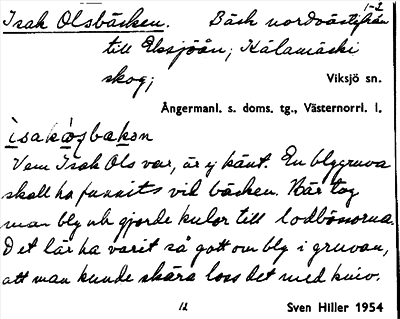 Isak Olsbäcken. Bäck nordvästifrån 1-2
till Eksjöån; Kälamäski
skog;
Viksjö sn.
Ångermanl. s. doms. tg., Västernorrl. l.
Vem Isak Ols var, är ej känt. En blygruva
skall ha funnits vid bäcken. Här tog
man bly och gjorde kulor till lodbössorna.
Det lär ha varit så gott om bly i gruvan,
att man kunde skära loss det med kniv.
12 Sven Hiller 1954